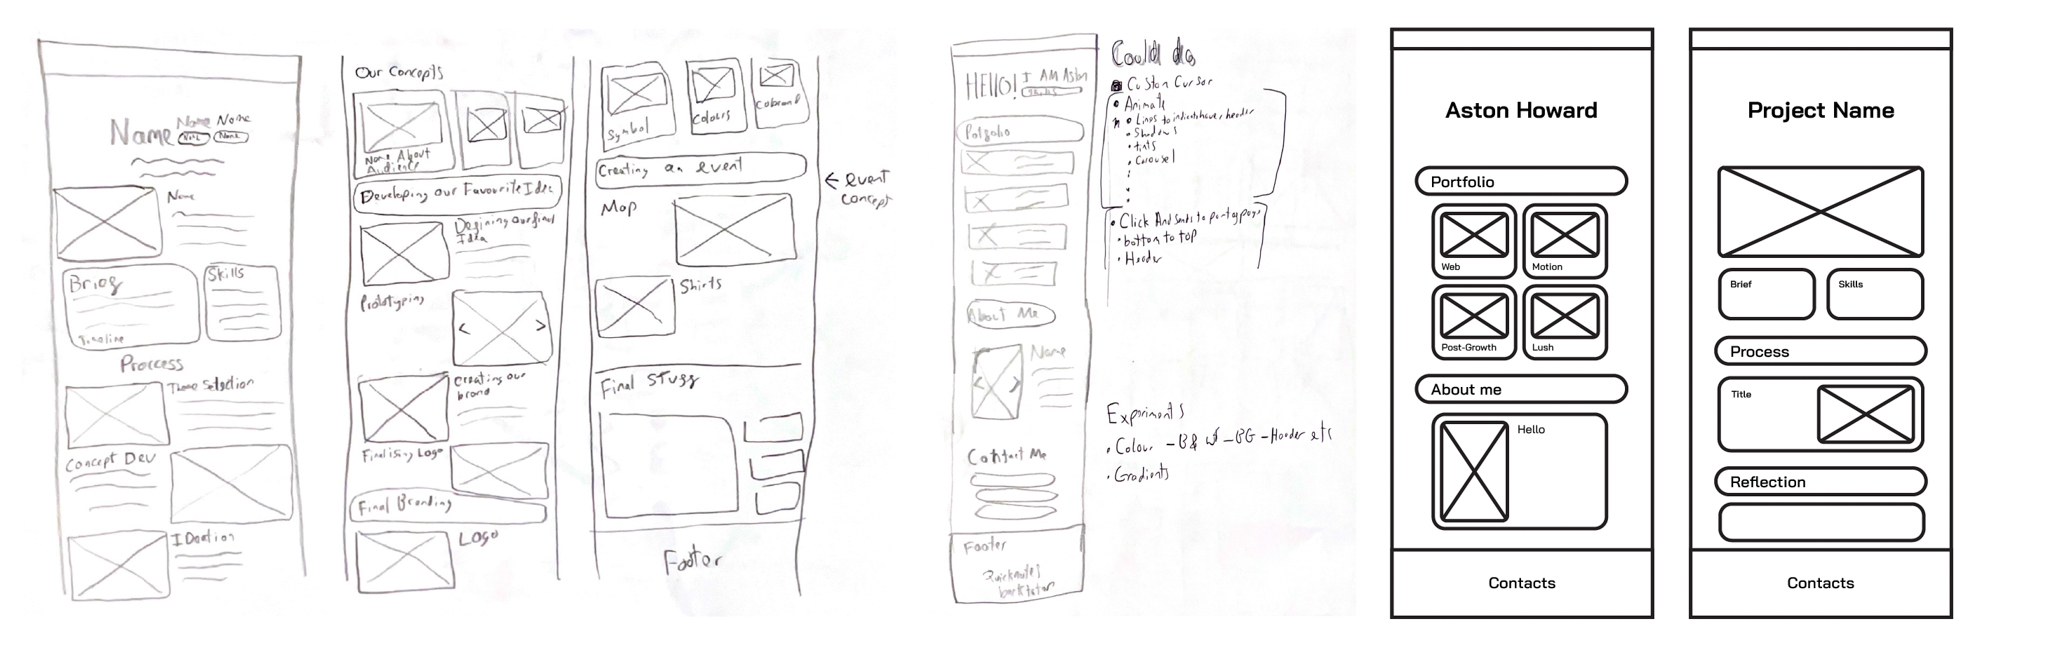 Name
Name
Nome
Name
Brief
Timeline
Skills
Process
Theme Selection
Concept Dev
Our Concepts
Name About
Audience
Developing our Favourite Idea
Degining our final
Idea
Prototyping
<
>
Creating our
brand
Finalising Logo
Final Branding
Logo
Symbol
Colours
Creating an event
← event
concept
Map
Shirts
Final Stuff
Footer
HELLO! I AM Aston
About Me
Name
<
>
Contact Me
Footer
Could do
Custon Cursor
Animate
Shadows
tints
Carousel
Click And sends to
button to top
Header
Expriments
Colour - B & W - BG - Header etc
Gradients
Aston Howard
Portfolio
Web
Motion
Post-Growth
Lush
About me
Hello
Contacts
Project Name
Brief
Skills
Process
Title
Reflection
Contacts